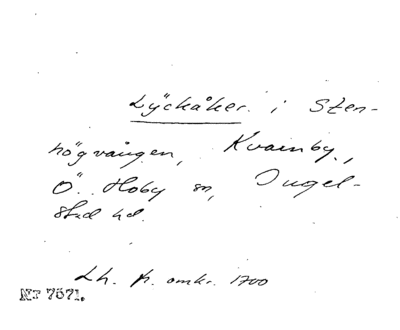 Lÿckåker. i Sten-
högvången, Kvarnby,
Ö. Hoby sn, Ingel-
stad hd.
Lh. k. omkr. 1700
NT 7571.